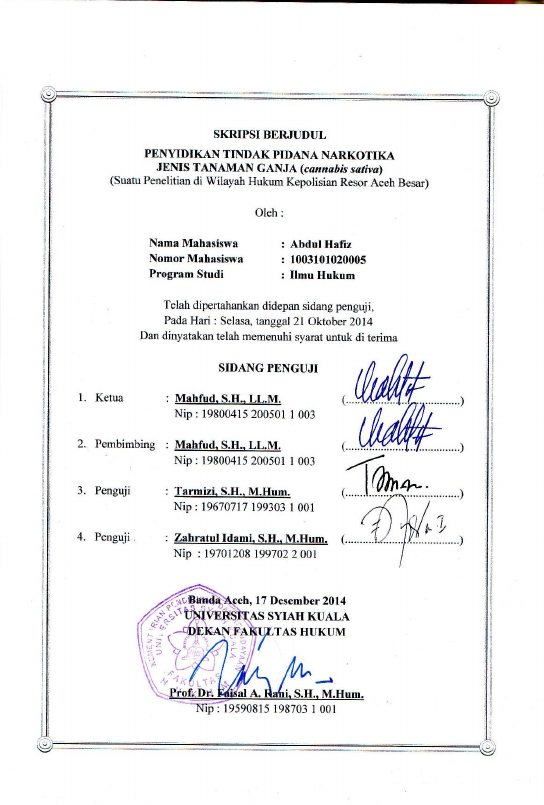 SKRIPSI BERJUDUL
PENYIDIKAN TINDAK PIDANA NARKOTIKA
JENIS TANAMAN GANJA (cannabis sativa)
(Suatu Penelitian di Wilayah Hukum Kepolisian Resor Aceh Besar)
Oleh :
Nama Mahasiswa : Abdul Hafiz
Nomor Mahasiswa : 1003101020005
Program Studi : Ilmu Hukum
Telah dipertahankan didepan sidang penguji,
Pada Hari : Selasa, tanggal 21 Oktober 2014
Dan dinyatakan telah memenuhi syarat untuk di terima
SIDANG PENGUJI
1. Ketua : Mahfud, S.H., LL.M. (..............................)
Nip : 19800415 200501 1 003
2. Pembimbing : Mahfud, S.H., LL.M. (..............................)
Nip : 19800415 200501 1 003
3. Penguji : Tarmizi, S.H., M.Hum. (..............................)
Nip : 19670717 199303 1 001
4. Penguji : Zahratul Idami, S.H., M.Hum. (..............................)
Nip : 19701208 199702 2 001
Banda Aceh, 17 Desember 2014
UNIVERSITAS SYIAH KUALA
DEKAN FAKULTAS HUKUM
UNIVERSITAS
FAKULTAS
Prof. Dr. Faisal A. Rani, S.H., M.Hum.
Nip : 19590815 198703 1 001